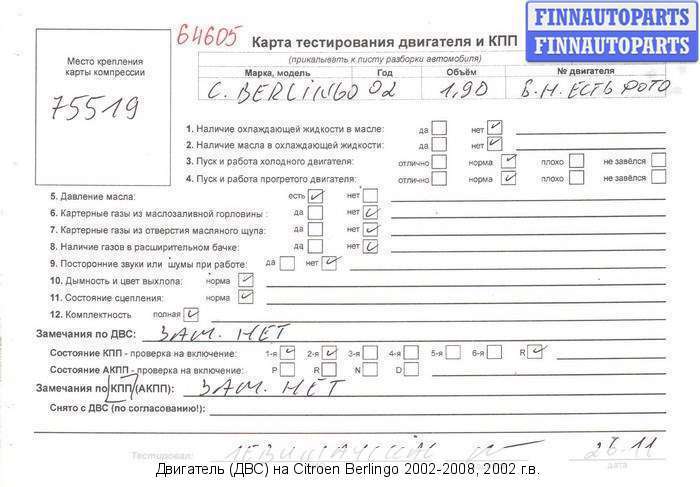 FINNAUTOPARTS
FINNAUTOPARTS
64605
Карта тестирования двигателя и КПП
(прикалывать к листу разборки автомобиля)
Место крепления
карты компрессии
75519
Марка, модель Год Объём № двигателя
C. BERLINGO 02 1,9D Б.Н. ЕСТЬ ФОТО
1. Наличие охлаждающей жидкости в масле: да нет
2. Наличие масла в охлаждающей жидкости: да нет
3. Пуск и работа холодного двигателя: отлично норма плохо не завёлся
4. Пуск и работа прогретого двигателя: отлично норма плохо не завёлся
5. Давление масла: есть нет
6. Картерные газы из маслозаливной горловины : да нет
7. Картерные газы из отверстия масляного щупа: да нет
8. Наличие газов в расширительном бачке: да нет
9. Посторонние звуки или шумы при работе: да нет
10. Дымность и цвет выхлопа: норма
11. Состояние сцепления: норма
12. Комплектность полная
Замечания по ДВС: ЗАМ. НЕТ
Состояние КПП - проверка на включение: 1-я 2-я 3-я 4-я 5-я 6-я R
Состояние АКПП - проверка на включение: P R N D
Замечания по КПП (АКПП): ЗАМ. НЕТ
Снято с ДВС (по согласованию!):
Тестировал: 26.11
дата
Двигатель (ДВС) на Citroen Berlingo 2002-2008, 2002 г.в.